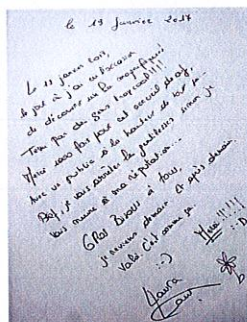 le 19 Janvier 2017
Le 11 janvier 2017,
le jour où j'ai eu l'occasion
de découvrir un lieu magnifique
Tenu par des gens
Merci 1000 fois pour cet accueil de
avec un public à la hauteur de tout ça...
Bref, je vais arrêter la gentillesse sinon je
vais nuire à ma réputation...
GROS BISOUS à tous.
je reviens demain et après demain
Voilà. C'est comme ça.
:-) Merci !!!!!
Laura